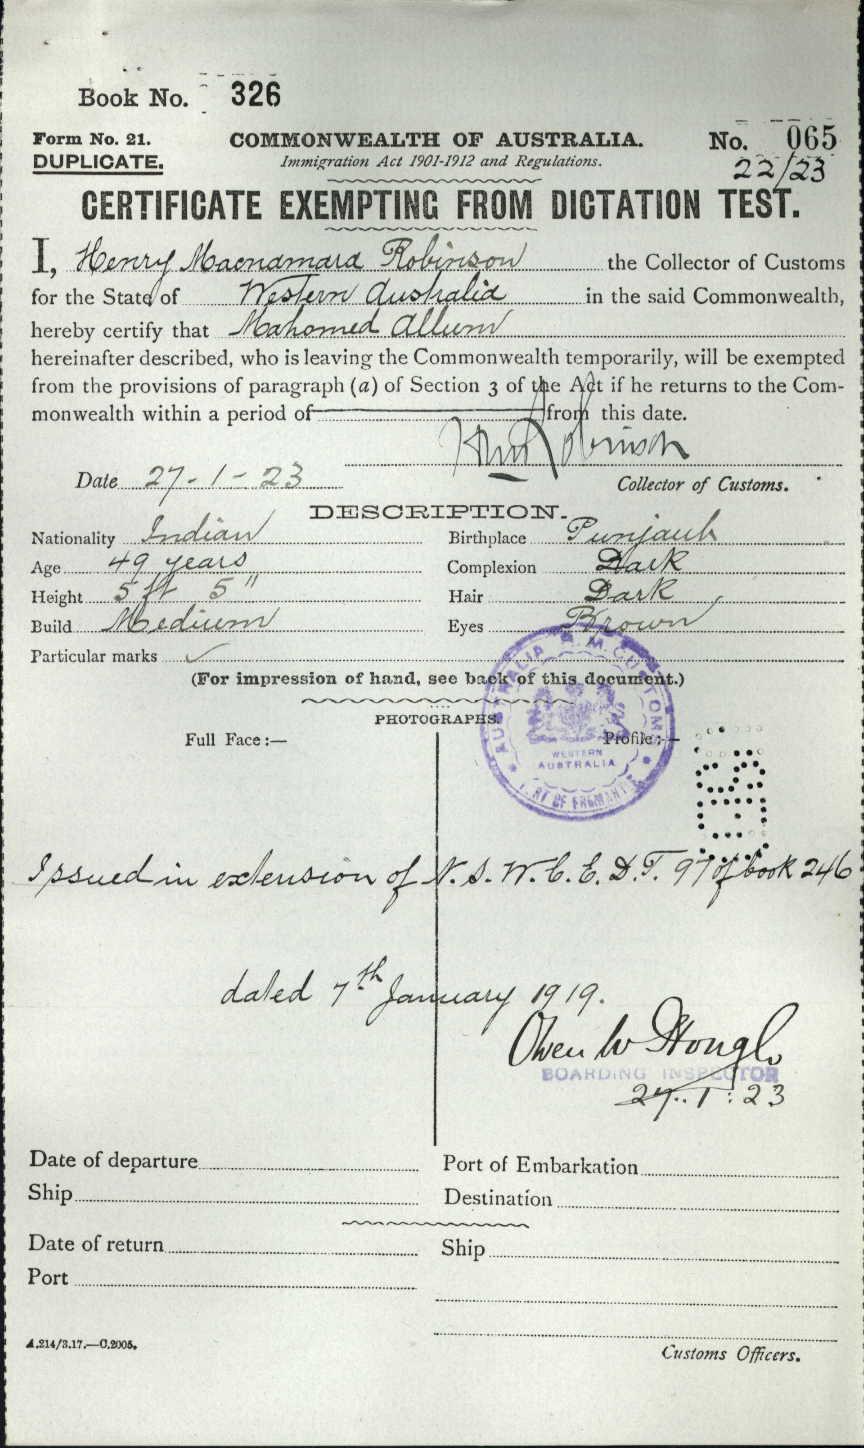 Book No. 326
Form No. 21.
DUPLICATE.
COMMONWEALTH OF AUSTRALIA.
Immigration Act 1901-1912 and Regulations.
No. 065
22/23
CERTIFICATE EXEMPTING FROM DICTATION TEST.
I, Henry Macnamara Robinson the Collector of Customs
for the State of Western Australia in the said Commonwealth,
hereby certify that Mahomed Allum
hereinafter described, who is leaving the Commonwealth temporarily, will be exempted
from the provisions of paragraph (a) of Section 3 of the Act if he returns to the Com-
monwealth within a period of from this date.
Robinson
Date 27-1-23
Collector of Customs.
DESCRIPTION.
Nationality Indian Birthplace Punjaub
Age 49 years Complexion Dark
Height 5 ft 5" Hair Dark
Build Medium Eyes Brown
Particular marks
(For impression of hand, see back of this document.)
PHOTOGRAPHS.
Full Face:— Profile:—
AUSTRALIA H.M. CUSTOMS
WESTERN
AUSTRALIA
PORT OF FREMANTLE
Issued in extension of N.S.W.C.E.D.T. 97 of book 246
dated 7th January 1919.
Owen W
BOARDING INSPECTOR
27.1:23
Date of departure Port of Embarkation
Ship Destination
Date of return Ship
Port
A.214/3.17.—C.2005.
Customs Officers.